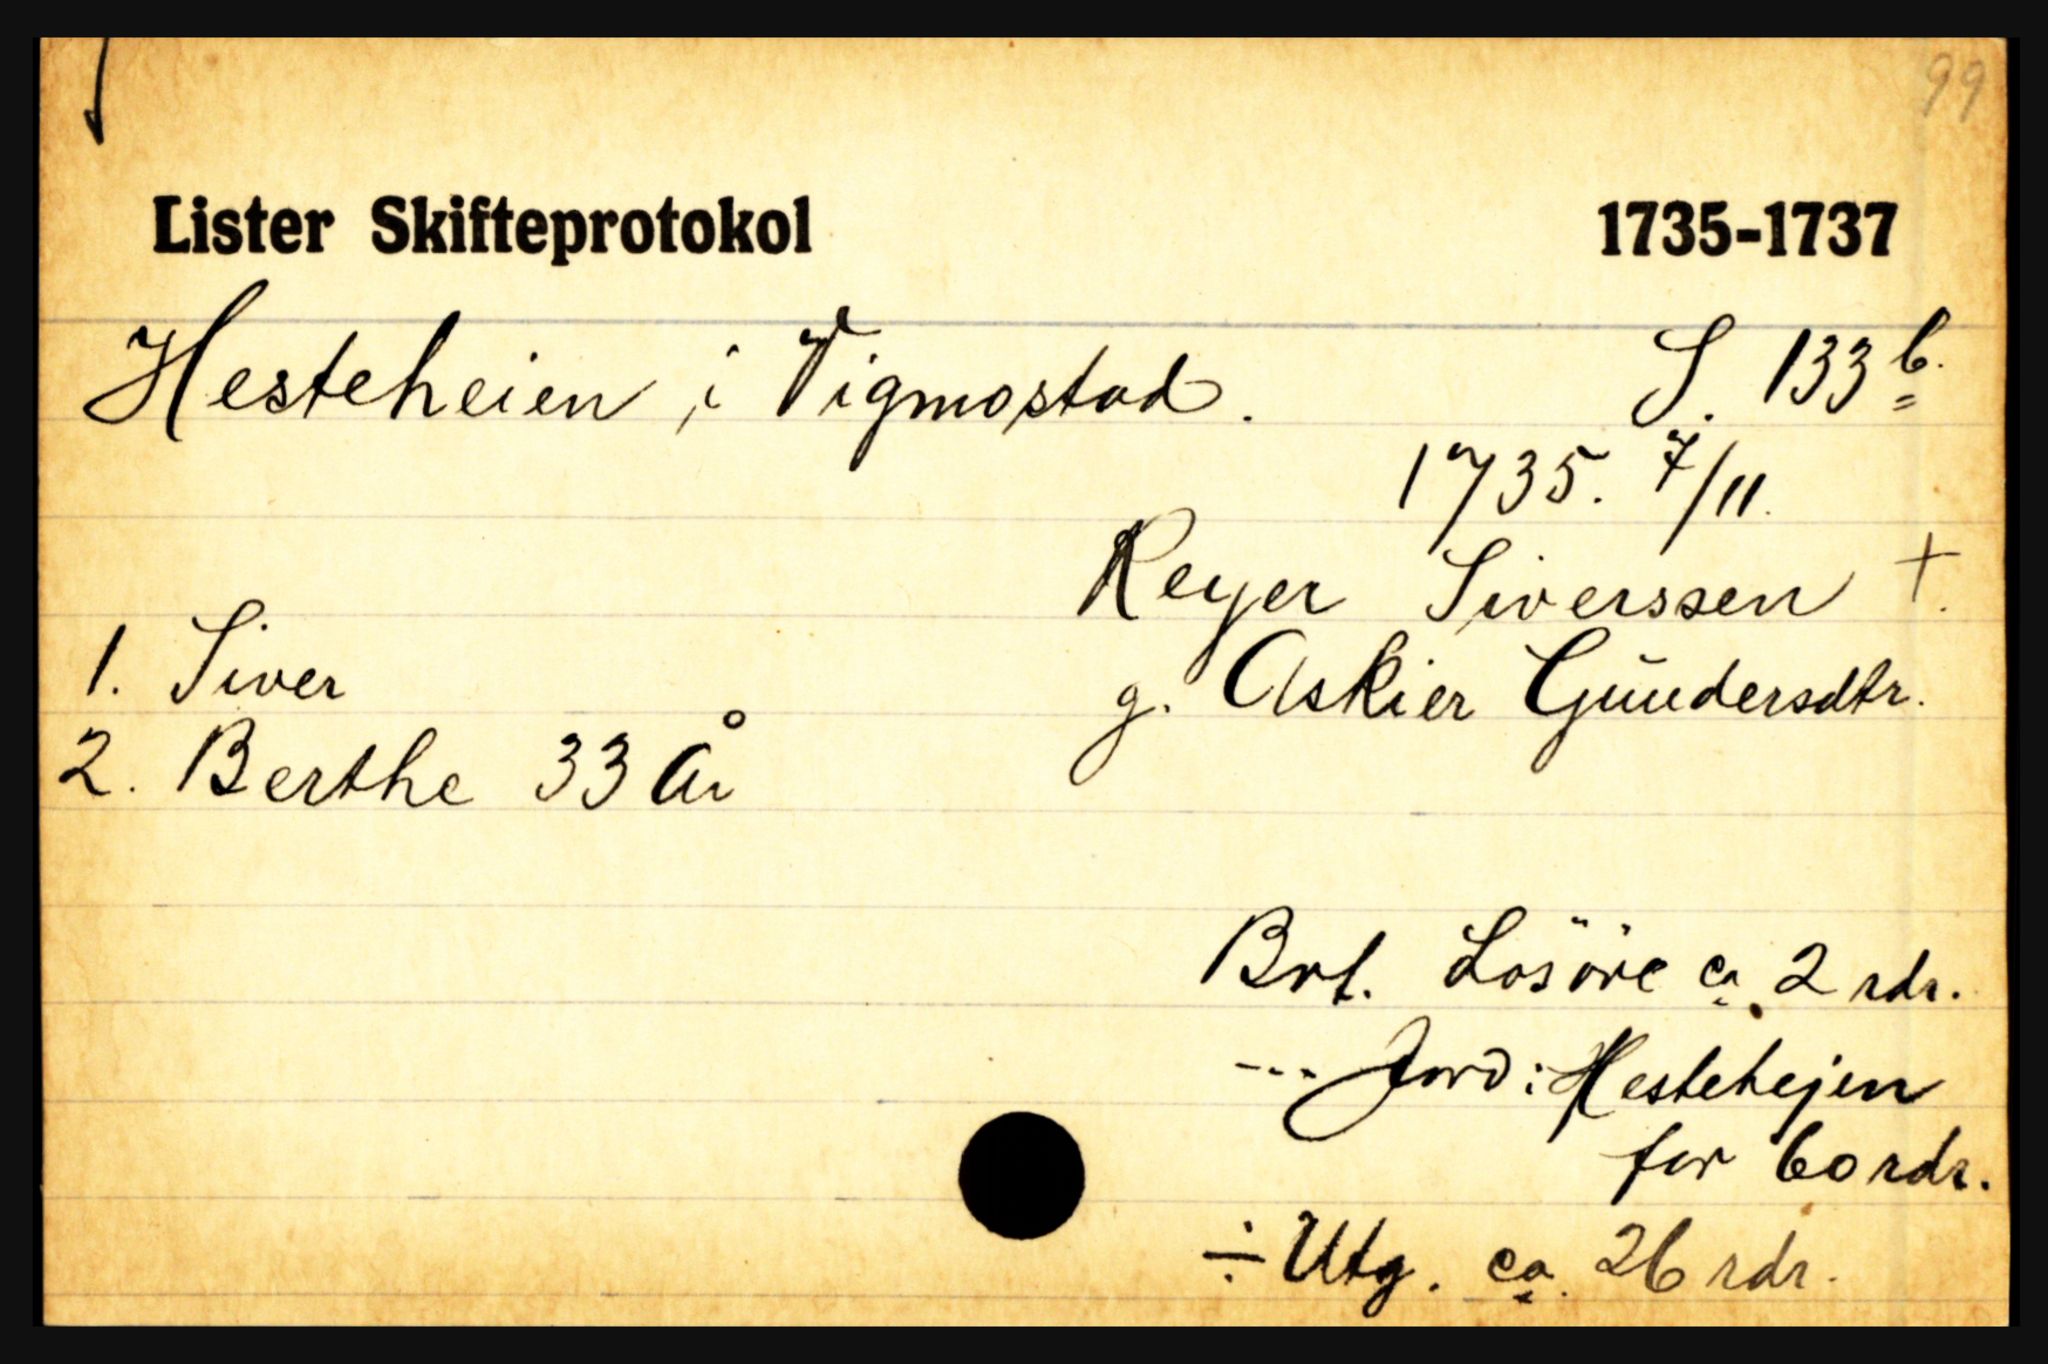 99
Lister Skifteprotokol 1735-1737
Hesteheien i Vigmostad. S. 133 b.
1735. 7/11.
Reyer Siverssen +.
1. Siver g. Askier Gŭndersdtr.
2. Berthe 33 År
Brt. Losöre ca. 2 rdr.
--- Jord: Hestehejen
for 60 rdr.
÷ Utg. ca. 26 rdr.